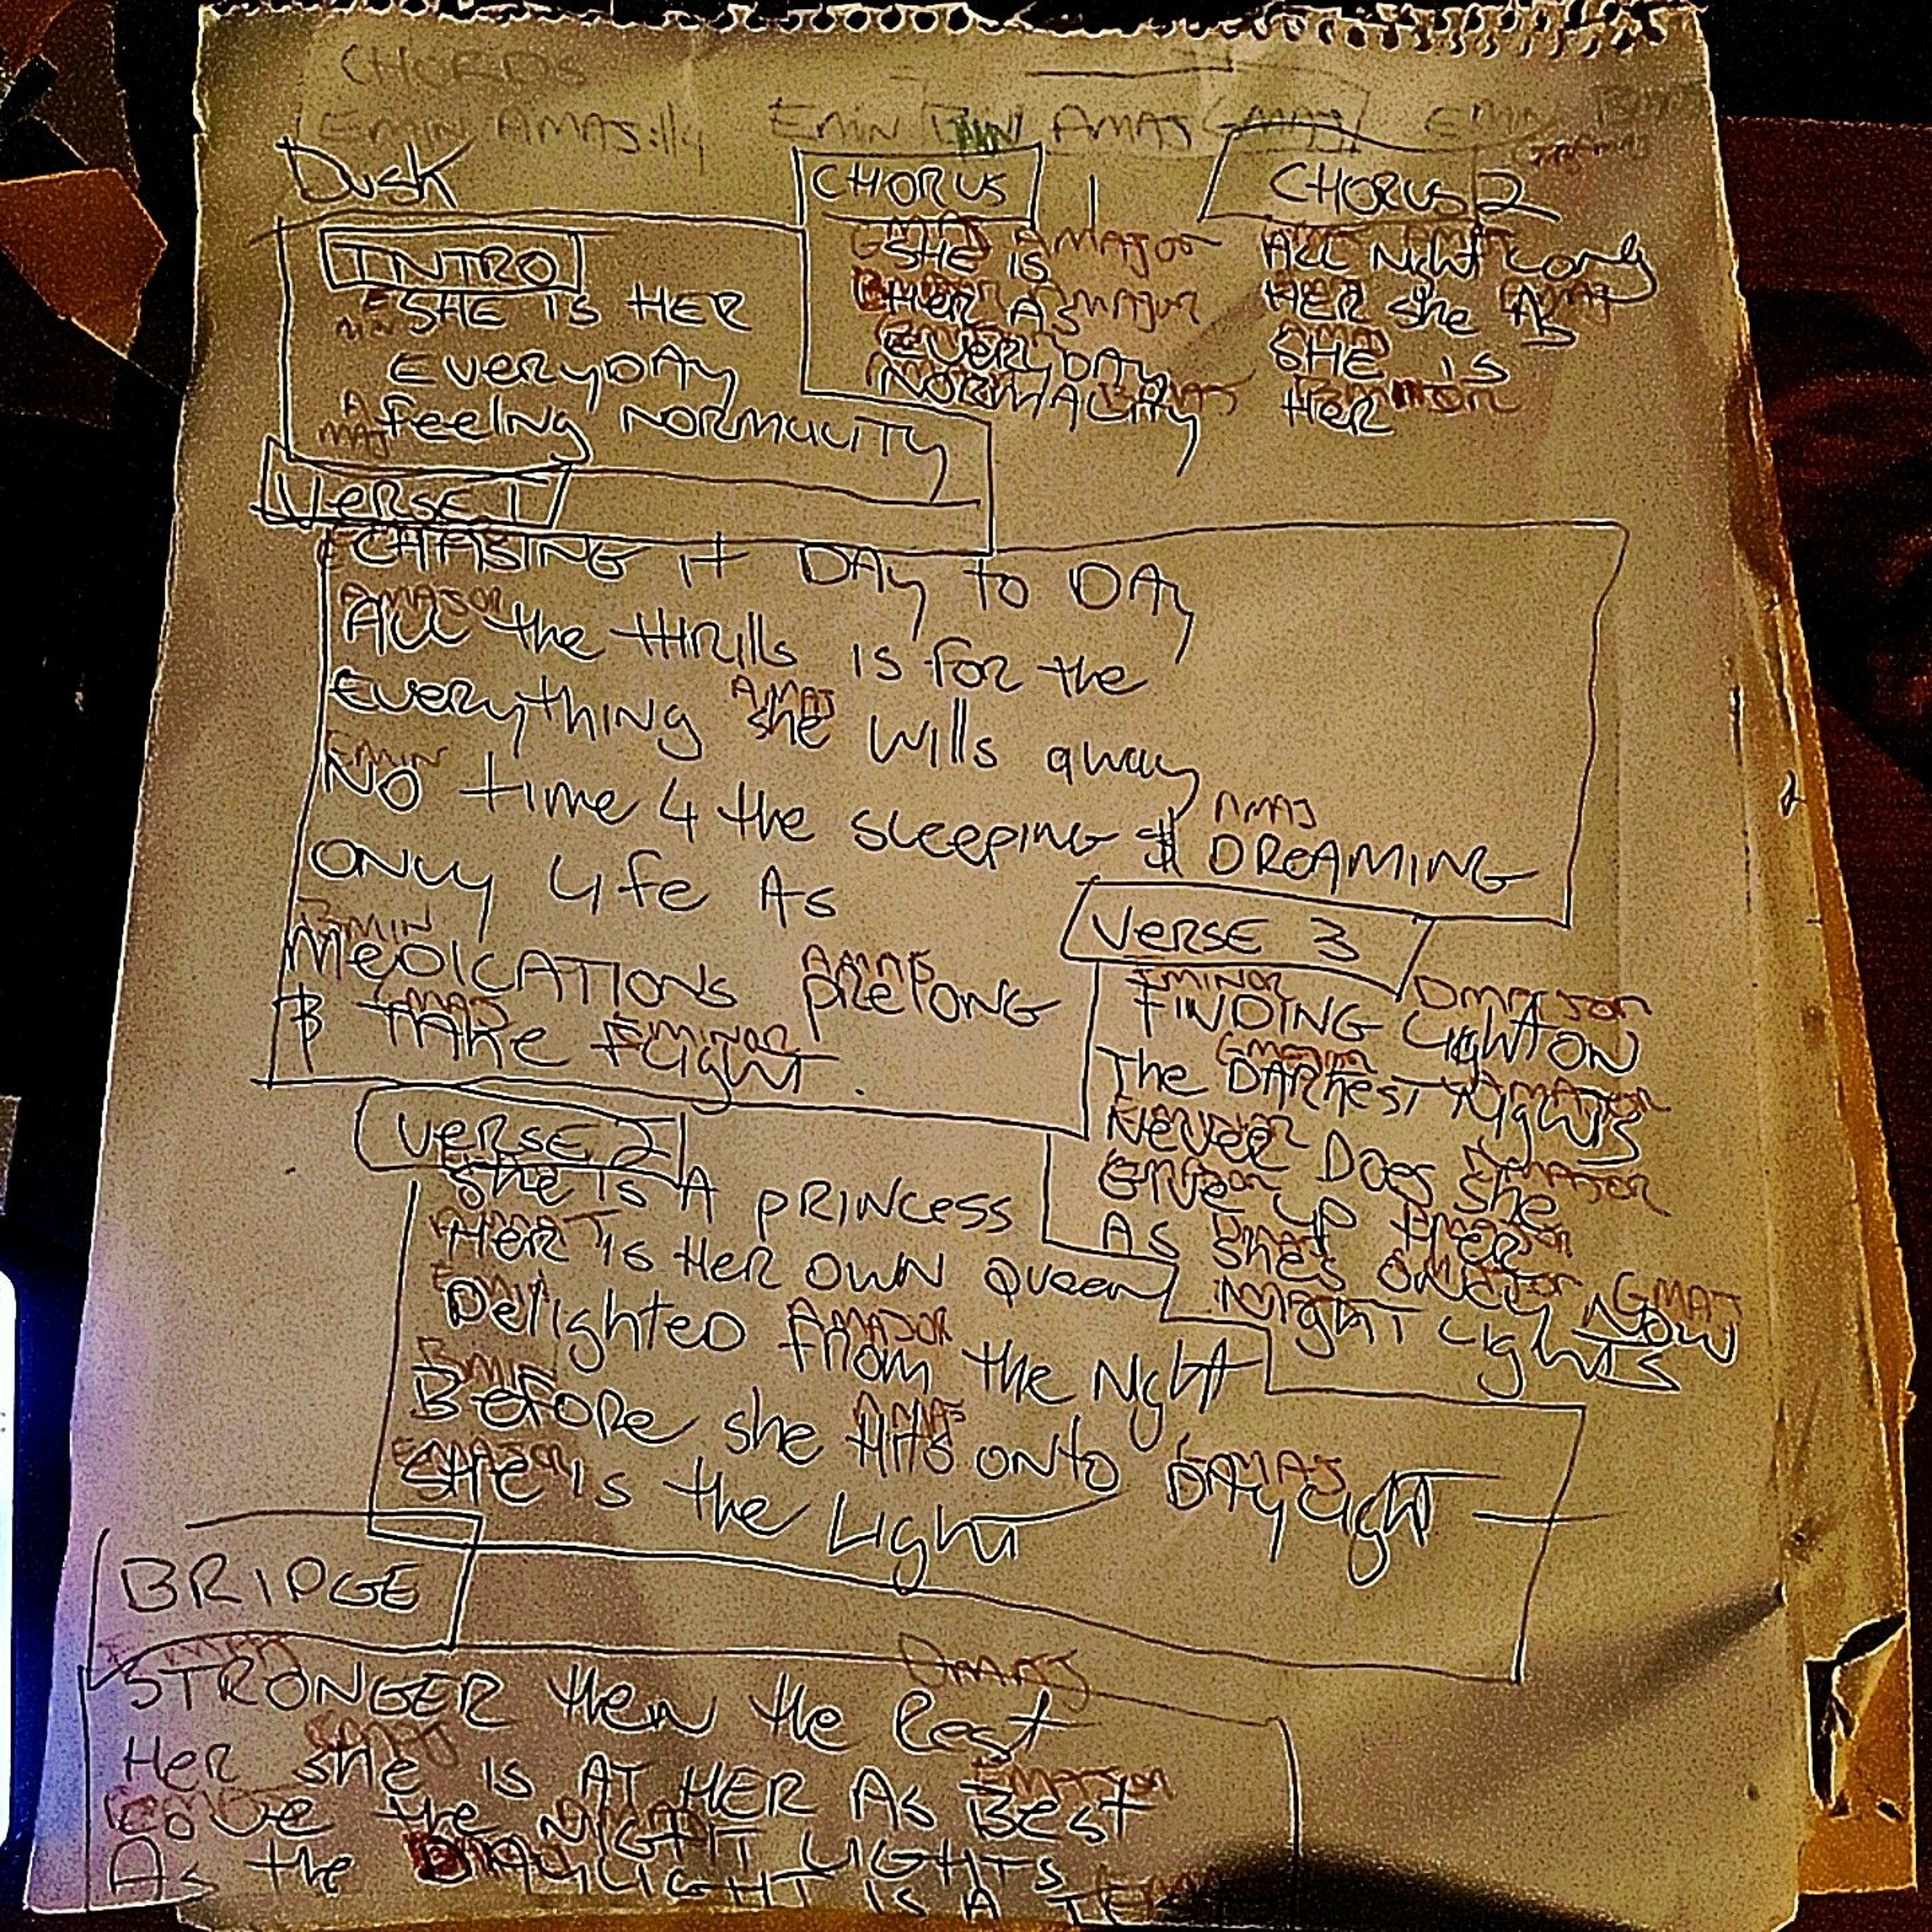 CHORDS
EMIN AMAJ://4 EMIN AMAJ GMAJ EMIN
DUSK
INTRO
E MIN SHE IS HER
EVERYDAY
A MAJ feeling NORMULITY
CHORUS
AMAJOR
SHE IS
HER AS
EVERYDAY
NORMALITY
CHORUS 2
All Night Long
HER she As
AMAJ
SHE is
Her
VERSE 1
CHASING it DAY to DAY
AMAJOR
All the thrills is for the
AMAJ
Everything she wills away
EMIN AMAJ
NO time 4 the sleeping $ DREAMING
ONLY life As
BMIN AMAJ
MEDICATIONS prelong
GMAJ EMINOR
$ TAKE Flight.
VERSE 2
She is A PRINCESS
HER is HER OWN Queen
EMIN AMAJOR
Delighted from the Night
BMIN AMAJ GMAJ
Before she Hits onto DAYlight
SHE is the Light
VERSE 3
EMINOR DMAJOR
FINDING Light ON
The DARKEST Nights
NEVER Does she
GIVE UP HER
As She's ONLY NOW
GMAJ
NIGHT Lights
BRIDGE
DMAJ
STRONGER then the Rest
Her she is AT HER As Best
LOVE the NIGHT LIGHTS
As the DAYLIGHT IS A